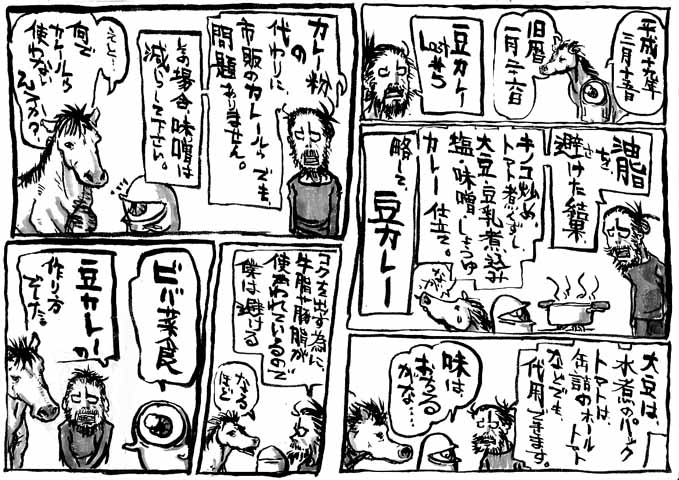 平成十九年
三月十五日
旧暦
一月二十六日
豆カレー
Last#5
油脂
を
避けた結果
キノコ炒め、
トマト煮くずし、
大豆・豆乳煮込み
塩・味噌・しょうゆ
カレー仕立て。
略して
豆カレー
大豆は
水煮のパック
トマトは、
缶詰のホールトマト
などでも、
代用できます。
味は
おちる
かな…
カレー粉
の
代わりに、
市販のカレールウでも、
問題ありません。
その場合、味噌は
減らして下さい。
えと…
何で
カレールウ
使わない
んすか?
コクを出す為に、
牛脂や豚脂が
使われているので
僕は避ける
なる
ほど
ビバ菜食
豆カレーの
作り方
でした。